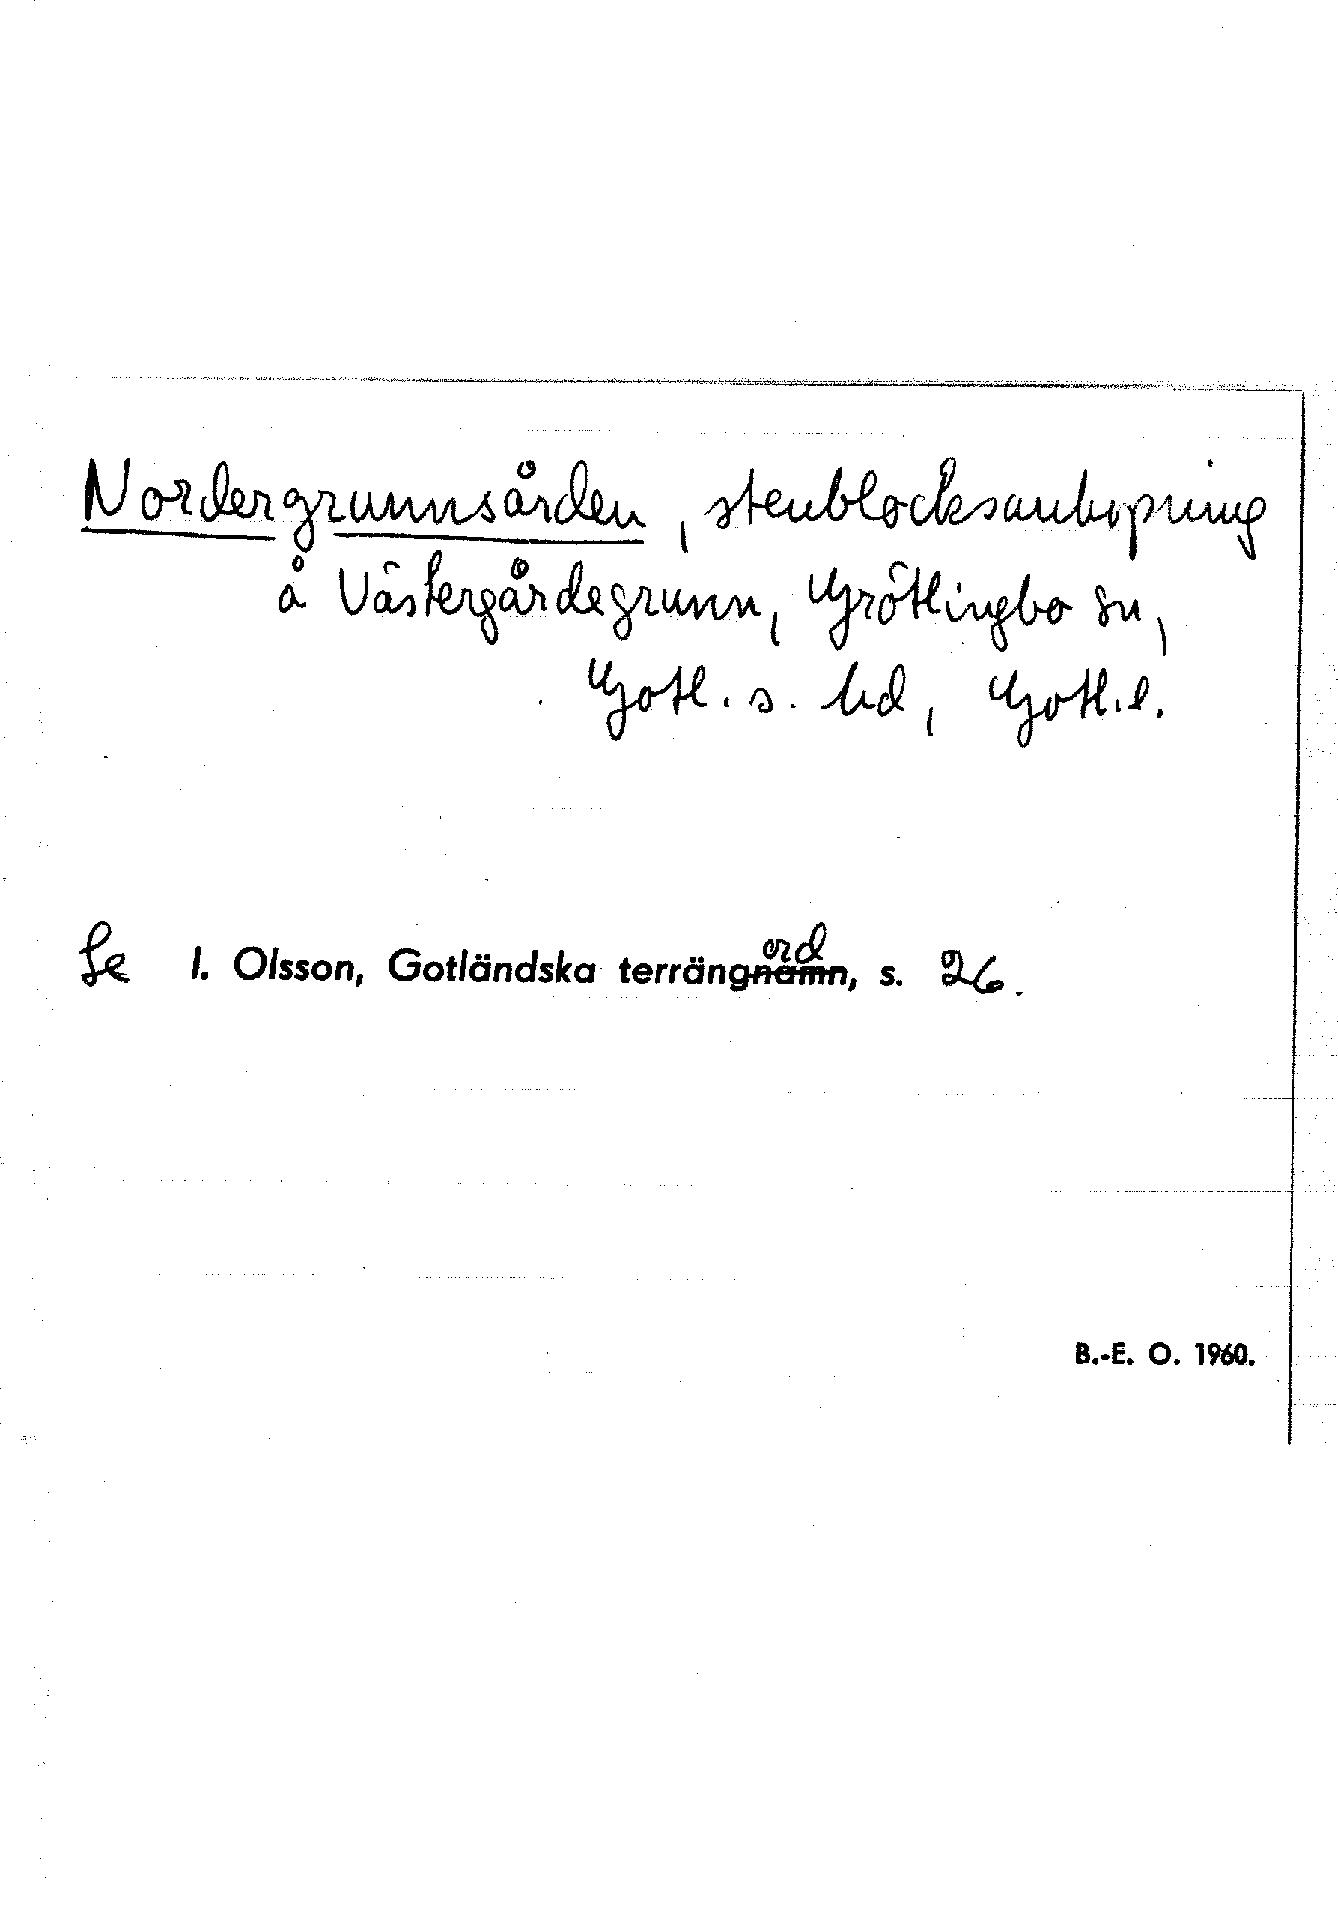 Nordergrunnsården, stenblocksanhopning
å Västergårdegrunn, Grötlingbo sn,
Gotl. s. hd, Gotl. l.
Se I. Olsson, Gotländska terrängnamn, s. 26.
ord
B.-E. O. 1960.